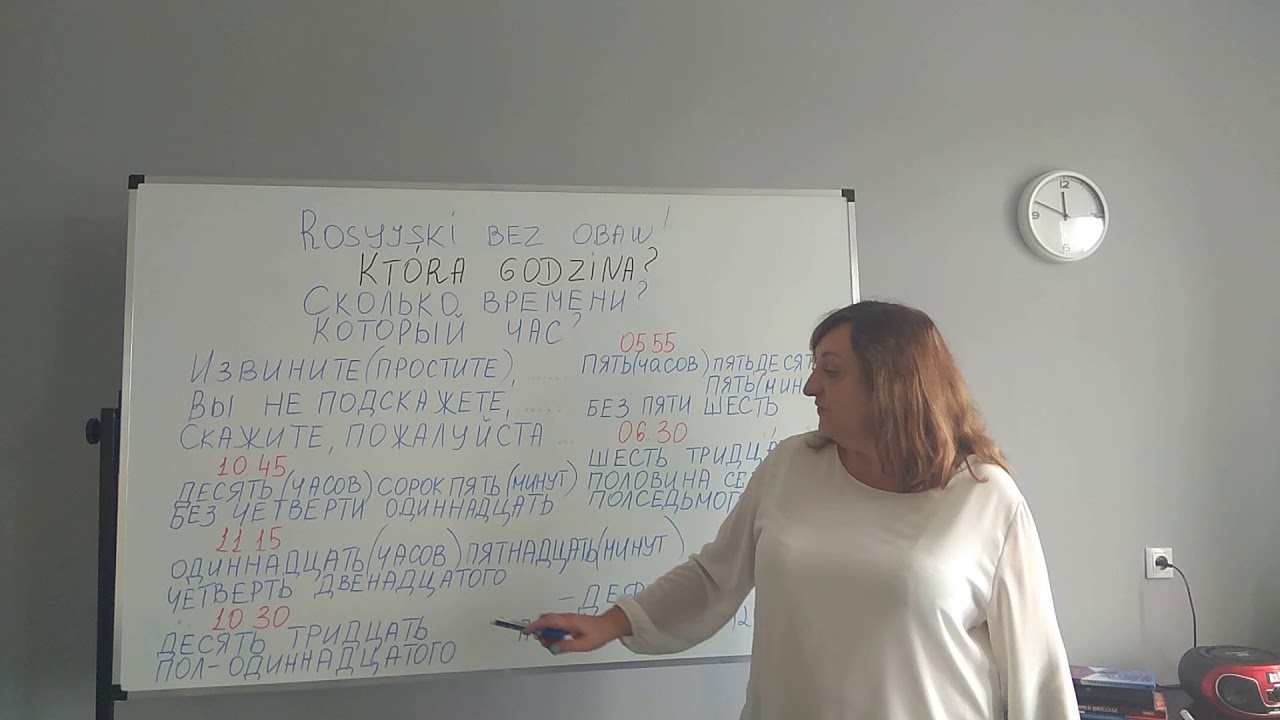 Rosyjski bez obaw!
KTÓRA GODZINA?
СКОЛЬКО ВРЕМЕНИ?
КОТОРЫЙ ЧАС?
ИЗВИНИТЕ (ПРОСТИТЕ), ......
ВЫ НЕ ПОДСКАЖЕТЕ, ......
СКАЖИТЕ, ПОЖАЛУЙСТА ...
10 45
ДЕСЯТЬ (ЧАСОВ) СОРОК ПЯТЬ (МИНУТ)
БЕЗ ЧЕТВЕРТИ ОДИННАДЦАТЬ
11 15
ОДИННАДЦАТЬ (ЧАСОВ) ПЯТНАДЦАТЬ (МИНУТ)
ЧЕТВЕРТЬ ДВЕНАДЦАТОГО
10 30
ДЕСЯТЬ ТРИДЦАТЬ
ПОЛ-ОДИННАДЦАТОГО
05 55
ПЯТЬ (ЧАСОВ) ПЯТЬДЕСЯТ
ПЯТЬ (МИН
БЕЗ ПЯТИ ШЕСТЬ
06.30
ШЕСТЬ ТРИДЦА
ПОЛОВИНА СЕ
ПОЛСЕДЬМОГ
- ДЕФ
12
12
9
6